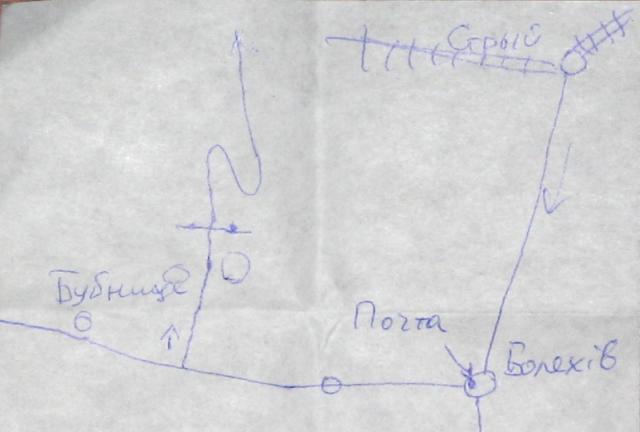 Стрый
Бубнище
Почта
Болехів